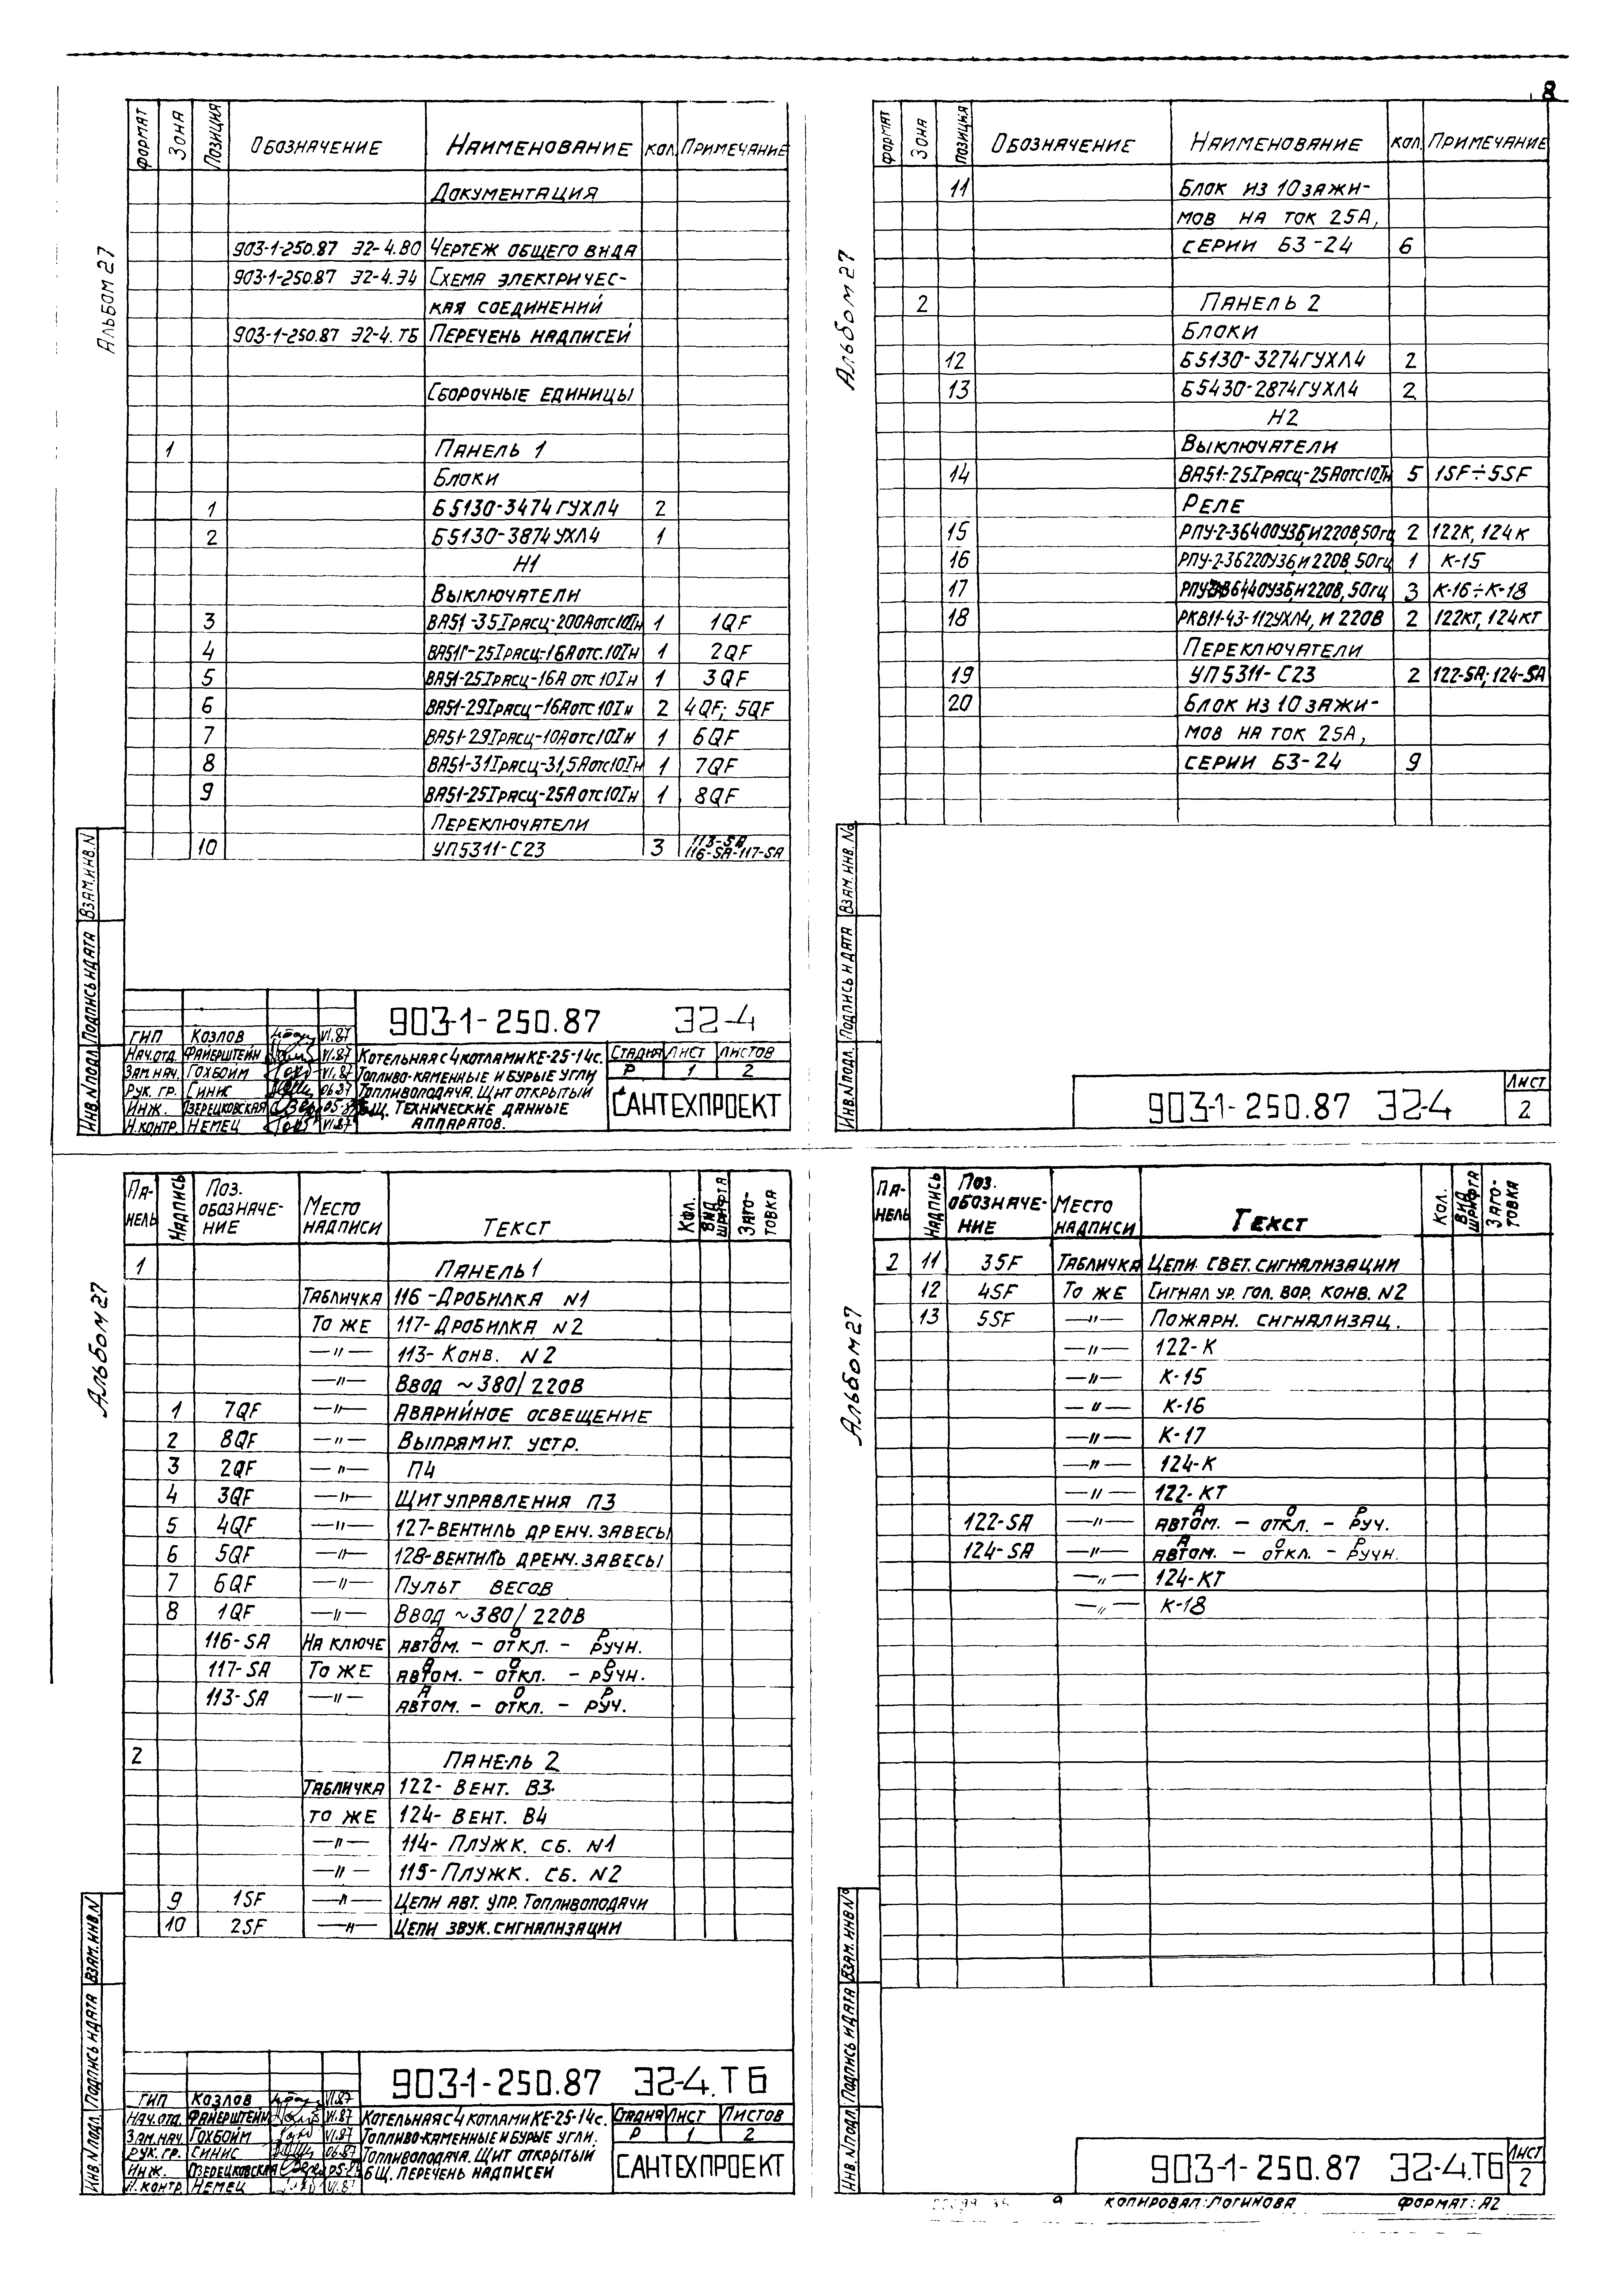 8
Альбом 27
Формат Зона Позиция Обозначение Наименование Кол. Примечание
Документация
903-1-250.87 Э2-4.ВО Чертеж общего вида
903-1-250.87 Э2-4.Э4 Схема электричес-
кая соединений
903-1-250.87 Э2-4.ТБ Перечень надписей
Сборочные единицы
1 Панель 1
Блоки
1 Б5130-3474ГУХЛ4 2
2 Б5130-3874УХЛ4 1
Н1
Выключатели
3 ВА51-35Iрасц-200Аотс10Iн 1 1QF
4 ВА51Г-25Iрасц-16Аотс.10Iн 1 2QF
5 ВА51-25Iрасц-16А отс 10Iн 1 3QF
6 ВА51-29Iрасц-16Аотс10Iн 2 4QF; 5QF
7 ВА51-29Iрасц-10Аотс10Iн 1 6QF
8 ВА51-31Iрасц-31,5Аотс10Iн 1 7QF
9 ВА51-25Iрасц-25А отс10Iн 1 8QF
Переключатели
10 УП5311-С23 3 113-SA
116-SA-117-SA
Взам.инв.N
Подпись и дата
Инв.N подл.
903-1-250.87 Э2-4
ГИП Козлов VI.87
Нач.отд. Файерштейн VI.87
Зам.нач. Гохбойм VI.87
Рук. гр. Синис 06.87
Инж. Озерецковская 05-87
Н.контр. Немец VI.87
Котельная с 4 котлами КЕ-25-14с.
Топливо-каменные и бурые угли
Топливоподача. Щит открытый
БЩ. Технические данные
аппаратов.
Стадия Лист Листов
Р 1 2
САНТЕХПРОЕКТ
Альбом 27
Формат Зона Позиция Обозначение Наименование Кол. Примечание
11 Блок из 10 зажи-
мов на ток 25А,
серии БЗ-24 6
2 Панель 2
Блоки
12 Б5130-3274ГУХЛ4 2
13 Б5430-2874ГУХЛ4 2
Н2
Выключатели
14 ВА51-25Iрасц-25Аотс10Iн 5 1SF÷5SF
Реле
15 РПУ-2-36400У3Б,U220В,50гц 2 122К, 124К
16 РПУ-2-36220У3Б,U220В,50гц 1 К-15
17 6440У3Б,U220В,50гц 3 К-16÷К-18
18 РКВ11-43-112УХЛ4, U 220В 2 122КТ, 124КТ
Переключатели
19 УП5311-С23 2 122-SA; 124-SA
20 Блок из 10 зажи-
мов на ток 25А,
серии БЗ-24 9
Взам.инв.No
Подпись и дата
Инв.N подл.
903-1-250.87 Э2-4
Лист
2
Альбом 27
Па-
нель Надпись Поз.
обозначе-
ние Место
надписи Текст Кол. Вид
шрифта Заго-
товка
1 Панель 1
Табличка 116-Дробилка N1
То же 117-Дробилка N2
—"— 113-Конв. N2
—"— Ввод ~380/220В
1 7QF —"— Аварийное освещение
2 8QF —"— Выпрямит. устр.
3 2QF —"— П4
4 3QF —"— Щит управления П3
5 4QF —"— 127-вентиль дренч.завесы
6 5QF —"— 128-вентиль дренч.завесы
7 6QF —"— Пульт весов
8 1QF —"— Ввод ~380/220В
116-SA На ключе А О Р
автом. - откл. - ручн.
117-SA То же А О Р
автом. - откл. - ручн.
113-SA —"— А О Р
автом. - откл. - руч.
2 Панель 2
Табличка 122- Вент. В3
то же 124- Вент. В4
—"— 114- Плужк. сб. N1
—"— 115-Плужк. сб. N2
9 1SF —"— Цепи авт. упр. топливоподачи
10 2SF —"— Цепи звук. сигнализации
Взам.инв.N
Подпись и дата
Инв.N подл.
903-1-250.87 Э2-4.ТБ
ГИП Козлов VI.87
Нач.отд. Файерштейн VI.87
Зам.нач. Гохбойм VI.87
Рук. гр. Синис 06.87
Инж. Озерецковская 05-87
Н.контр. Немец VI.87
Котельная с 4 котлами КЕ-25-14с.
Топливо-каменные и бурые угли.
Топливоподача. Щит открытый
БЩ. Перечень надписей
Стадия Лист Листов
Р 1 2
САНТЕХПРОЕКТ
Альбом 27
Па-
нель Надпись Поз.
обозначе-
ние Место
надписи Текст Кол. Вид
шрифта Заго-
товка
2 11 3SF Табличка Цепи свет. сигнализации
12 4SF То же Сигнал ур. гол. вор. конв. N2
13 5SF —"— Пожарн. сигнализац.
—"— 122-К
—"— К-15
—"— К-16
—"— К-17
—"— 124-К
—"— 122-КТ
122-SA —"— А О Р
автом. - откл. - руч.
124-SA —"— А О Р
автом. - откл. - ручн.
—"— 124-КТ
—"— К-18
Взам.инв.No
Подпись и дата
Инв.N подл.
903-1-250.87 Э2-4.ТБ
Лист
2
Копировал: Логинова Формат: А2